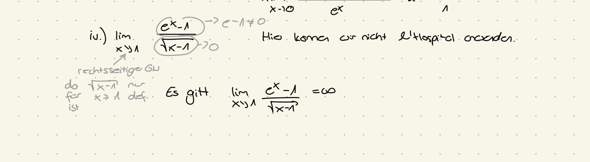 lim x→0 e^x 1
iv.) lim x↘1 (e^x-1)/(√x-1) → e-1≠0 →0 Hier können wir nicht L'Hospital anwenden.
rechtsseitige GW
da √x-1 nur
für x>1 def.
ist
Es gilt lim x↘1 (e^x-1)/(√x-1) = ∞